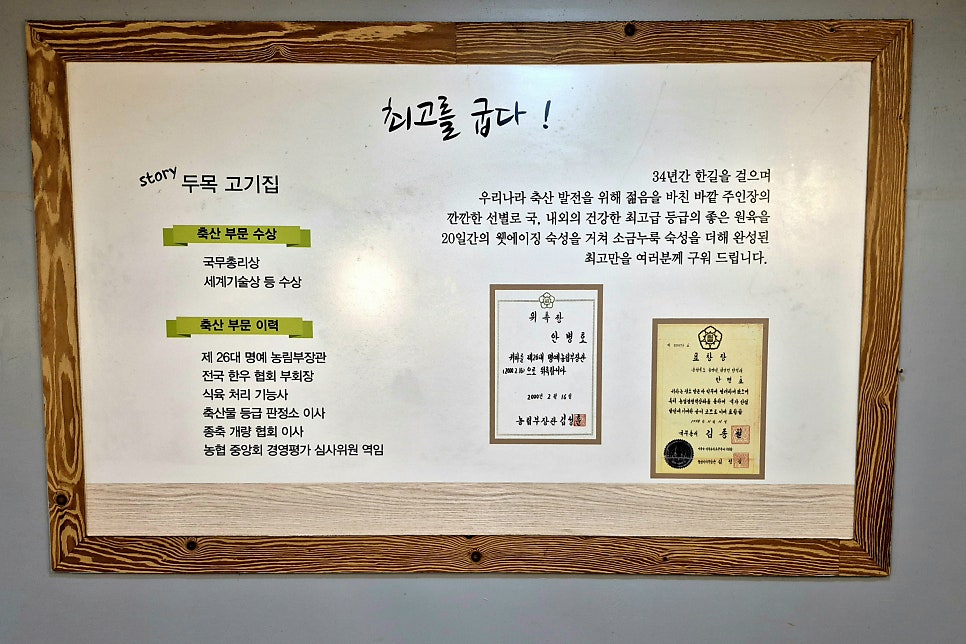 최고를 굽다 !
story 두목 고기집
축산 부문 수상
국무총리상
세계기술상 등 수상
축산 부문 이력
제 26대 명예 농림부장관
전국 한우 협회 부회장
식육 처리 기능사
축산물 등급 판정소 이사
종축 개량 협회 이사
농협 중앙회 경영평가 심사위원 역임
34년간 한길을 걸으며
우리나라 축산 발전을 위해 젊음을 바친 바깥 주인장의
깐깐한 선별로 국, 내외의 건강한 최고급 등급의 좋은 원육을
20일간의 웻에이징 숙성을 거쳐 소금누룩 숙성을 더해 완성된
최고만을 여러분께 구워 드립니다.
위 촉 장
안 병 호
귀하를 제26대 명예농림부장관
(2000.2.16) 으로 위촉합니다.
2000 년 2 월 16 일
농림부장관 김성훈
표 창 장
안 병 호
국무총리 김 종 필